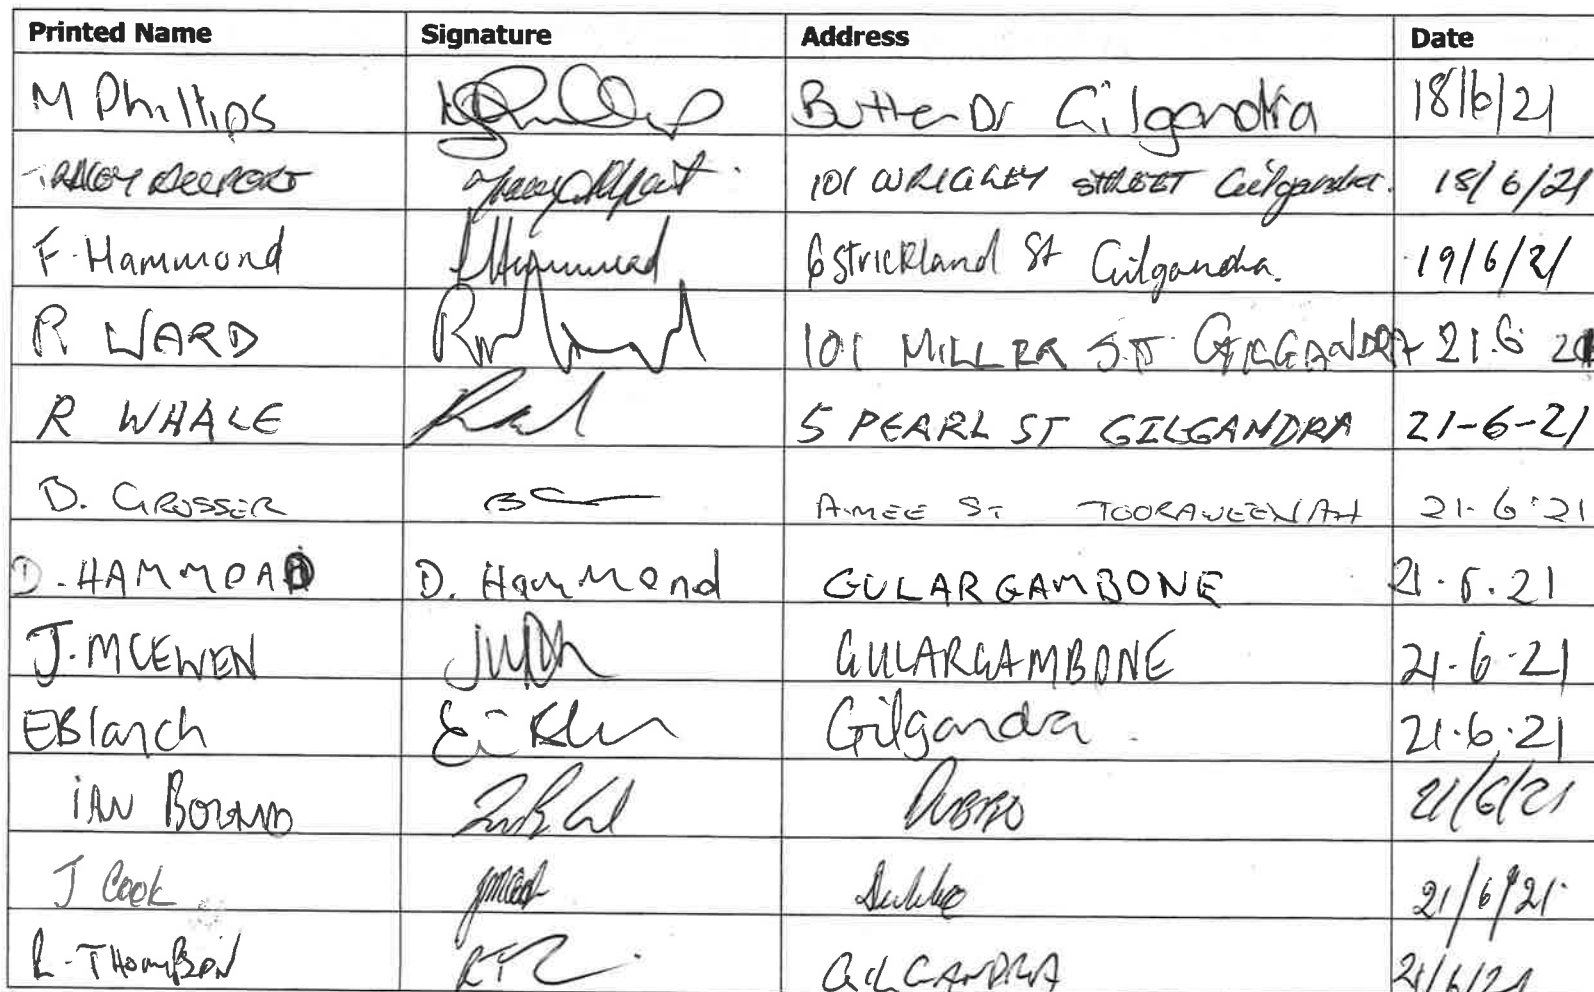 Printed Name Signature Address Date
M Phillips Butler Dr Gilgandra 18/6/21
101 WRIGLEY STREET Gilgandra. 18/6/21
F. Hammond F Hammond 6 Strickland St Gilgandra. 19/6/21
R WARD 101 MILLER ST GILGANDRA 21.6
R WHALE 5 PEARL ST GILGANDRA 21-6-21
B. GROSSER AIMEE ST TOORAWEENAH 21.6.21
D. HAMMOND D. Hammond GULARGAMBONE 21.6.21
J. MCEWEN GULARGAMBONE 21.6.21
E Blanch Gilgandra. 21.6.21
IAN BOLAND DUBBO 21/6/21
J Cook Dubbo 21/6/21
R. THOMPSON GILGANDRA 21/6/21